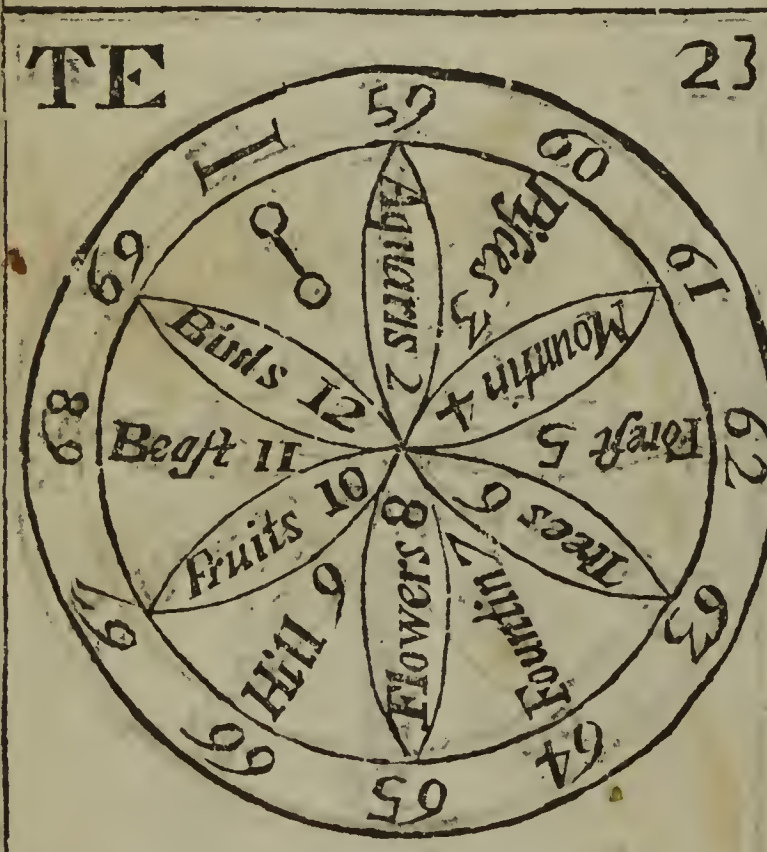 TE
23
I
59
60
61
62
63
64
65
66
67
68
69
Aquaris 2
Piſces 3
Mountin 4
Foreſt 5
Trees 6
Fountin 7
Flowers 8
Hill 9
Fruits 10
Beaſt 11
Birds 12